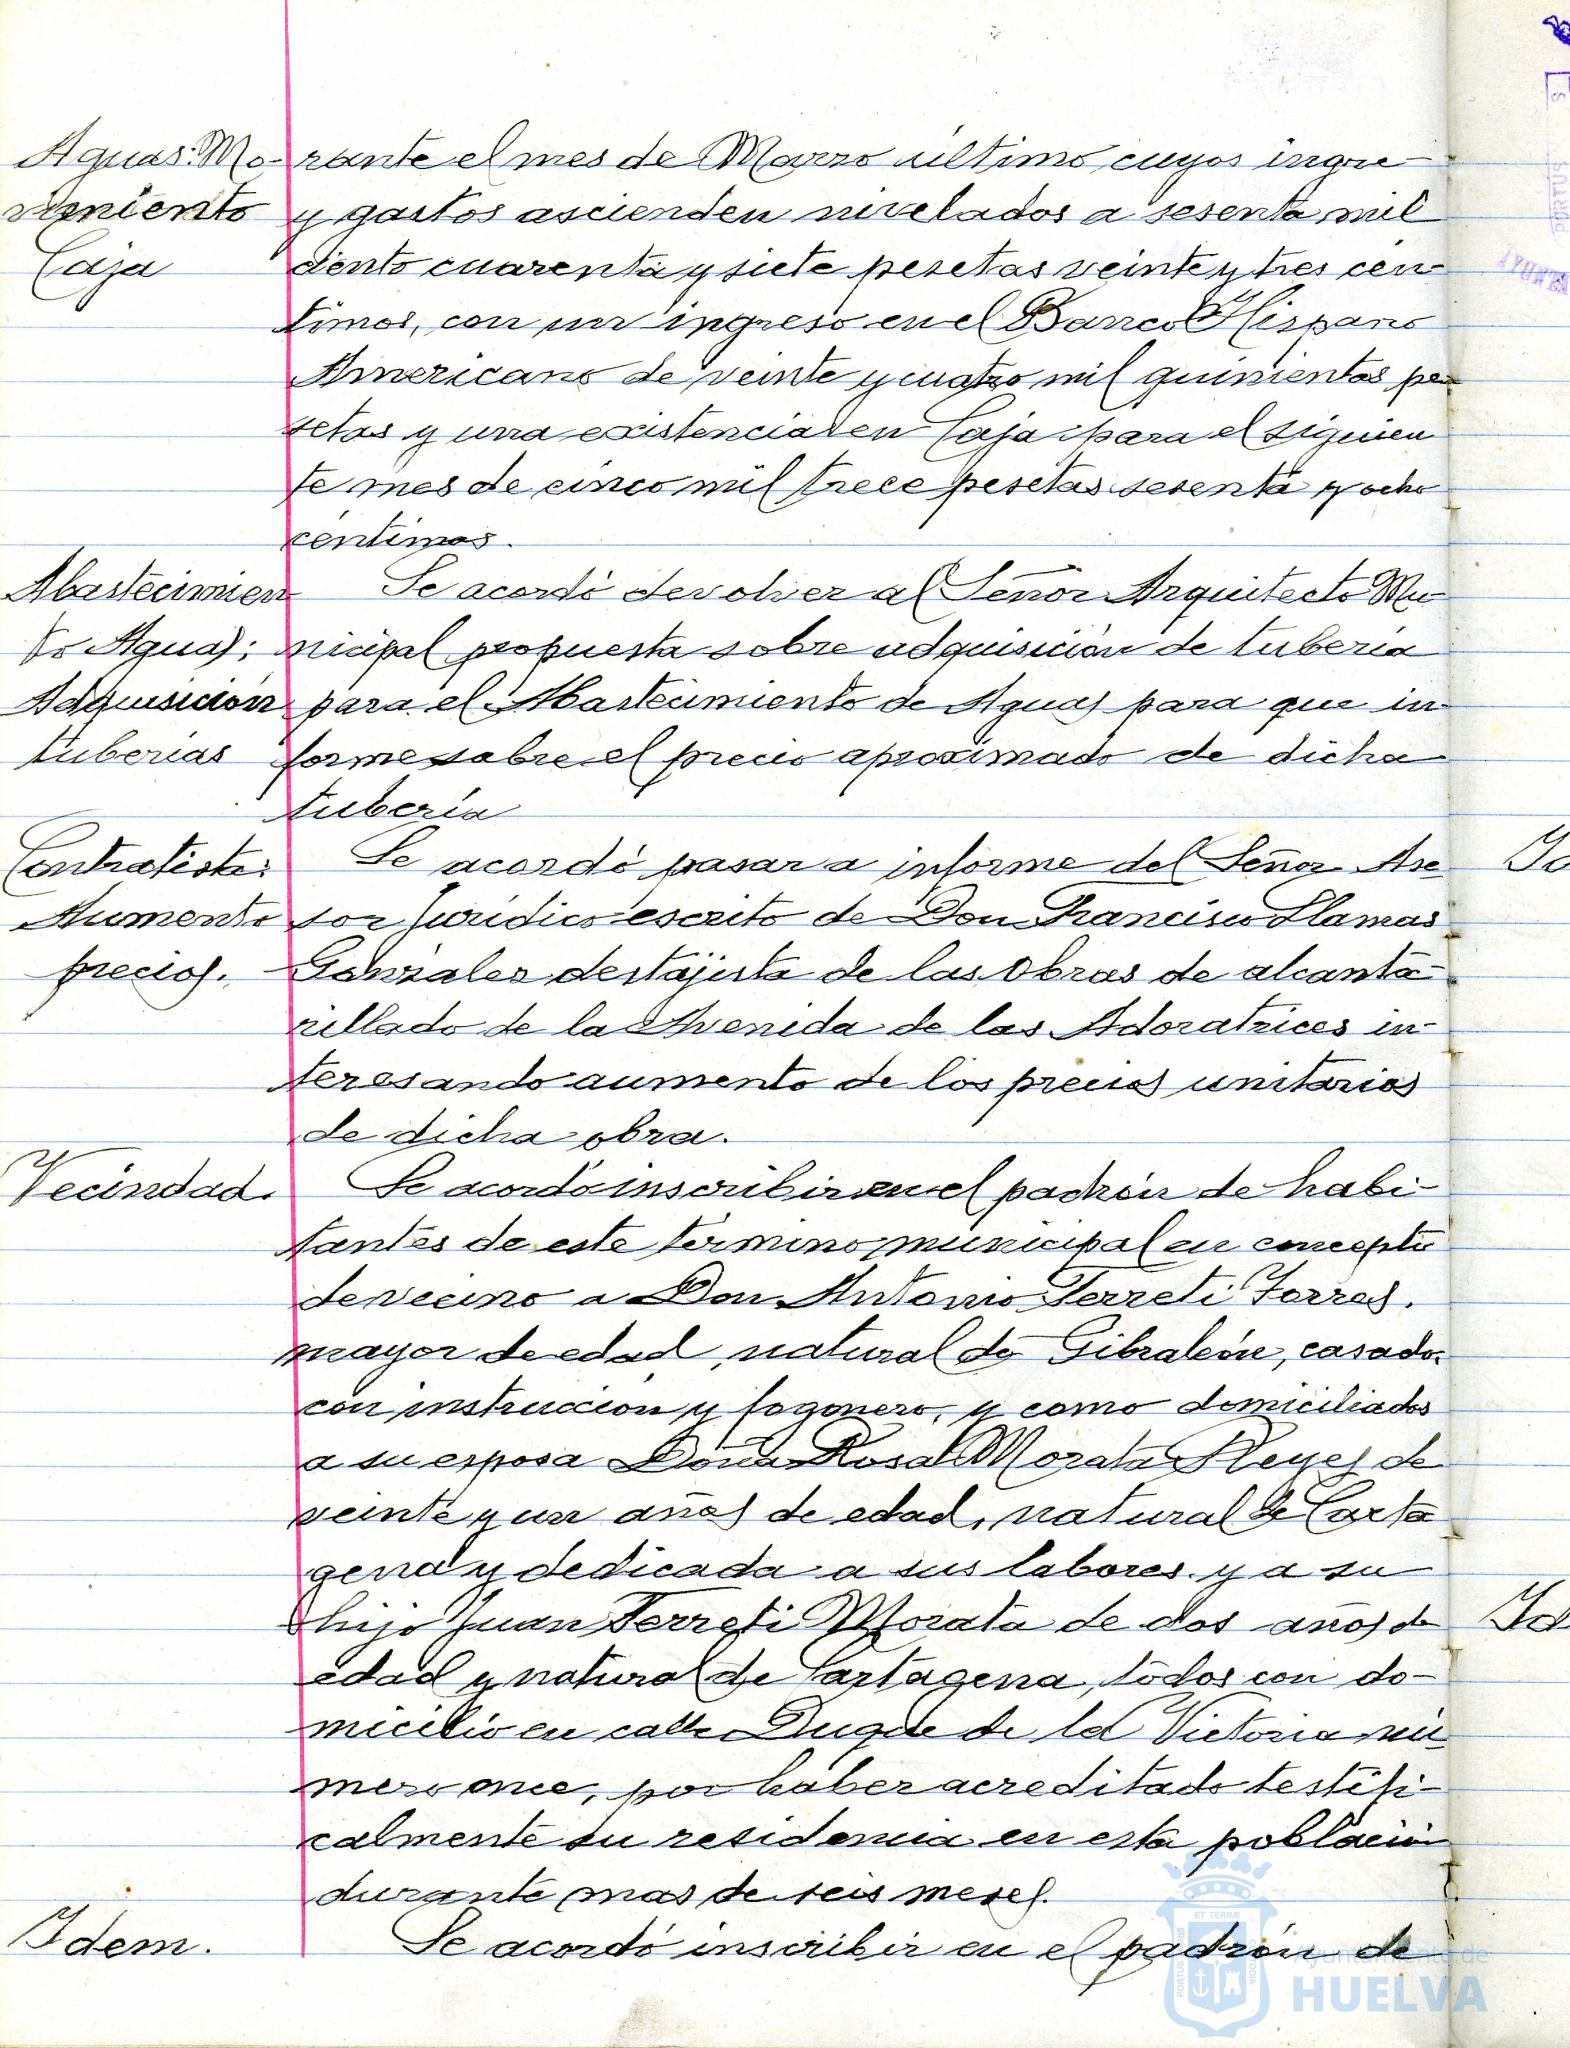 Aguas: Mo-
vimiento
Caja
rante el mes de Marzo último cuyos ingre
y gastos ascienden nivelados a sesenta mil
ciento cuarenta y siete pesetas veinte y tres cén-
timos, con un ingreso en el Banco Hispano
Americano de veinte y cuatro mil quinientas pe-
setas y una existencia en Caja para el siguien
te mes de cinco mil trece pesetas sesenta y ocho
céntimos.
Abastecimien
to Aguas;
Adquisición
tuberías
Se acordó devolver al Señor Arquitecto Mu-
nicipal propuesta sobre adquisición de tubería
para el Abastecimiento de Aguas para que in-
forme sobre el precio aproximado de dicha
tubería
Contratista:
Aumento
precios.
Se acordó pasar a informe del Señor Ase-
sor Jurídico escrito de Don Francisco Llamas
Gonzalez destajista de las obras de alcanta-
rillado de la Avenida de las Adoratrices in-
teresando aumento de los precios unitarios
de dicha obra.
Vecindad.
Se acordó inscribir en el padrón de habi-
tantes de este término municipal en concepto
de vecino a Don Antonio Ferreti Torres,
mayor de edad, natural de Gibraleón, casado,
con instrucción y fogonero, y como domiciliados
a su esposa Doña Rosa Morata Reyes de
veinte y un años de edad, natural de Carta
gena y dedicada a sus labores y a su
hijo Juan Ferreti Morata de dos años de
edad y natural de Cartagena, todos con do-
micilio en calle Duque de la Victoria nú-
mero once, por haber acreditado testifi-
calmente su residencia en esta población
durante mas de seis meses.
Idem.
Se acordó inscribir en el padrón de
Id
Ayuntamiento de
HUELVA